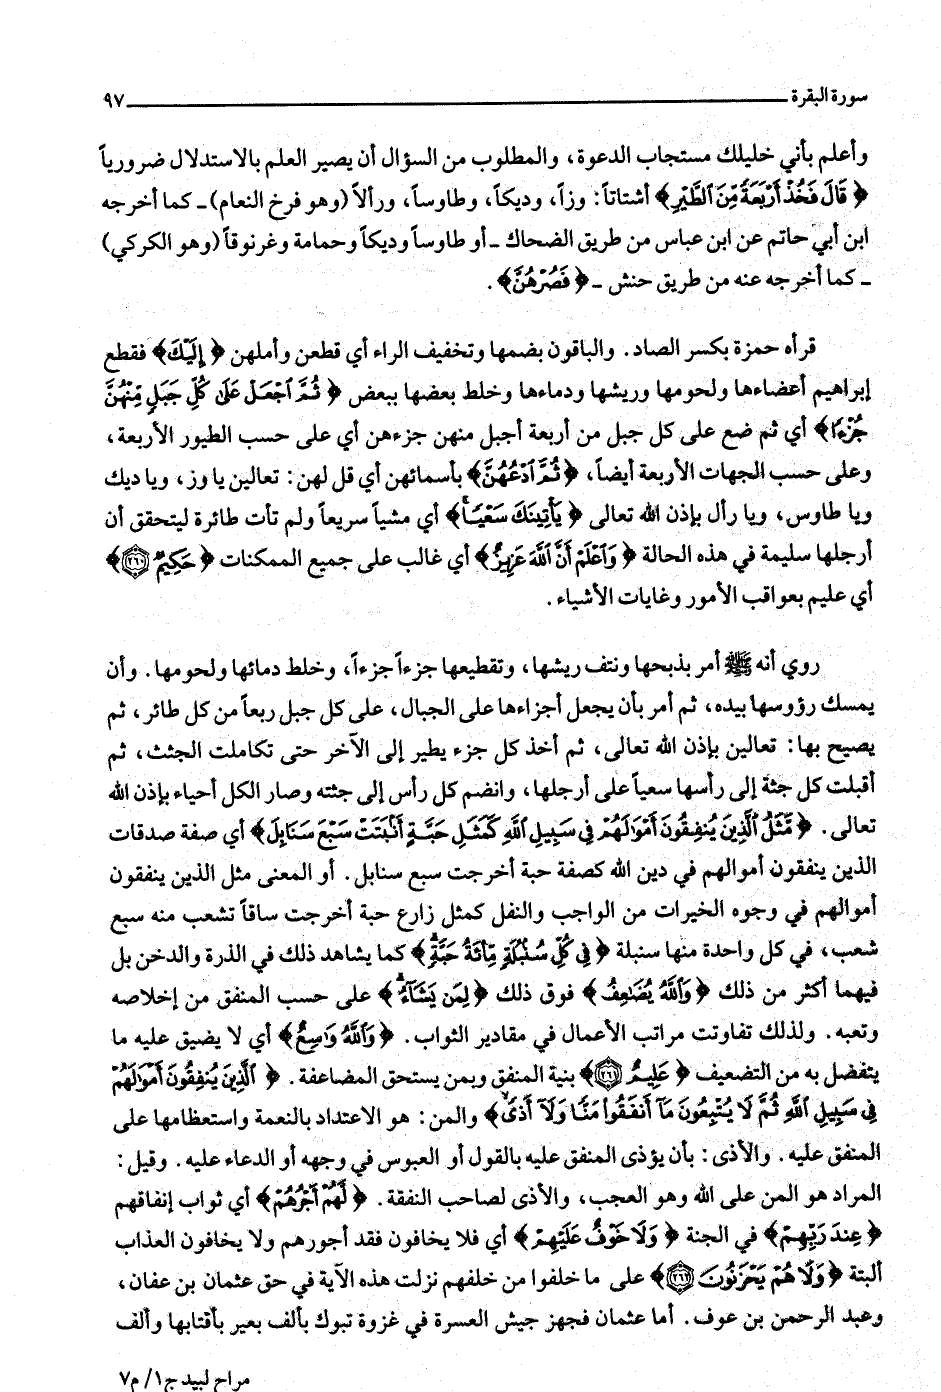 سورة البقرة ٩٧
وأعلم بأني خليلك مستجاب الدعوة، والمطلوب من السؤال أن يصير العلم بالاستدلال ضرورياً
﴿ قَالَ فَخُذْ أَرْبَعَةً مِّنَ الطَّيْرِ ﴾ أشتاتاً: وزاً، وديكاً، وطاوساً، ورألاً (وهو فرخ النعام) ـ كما أخرجه
ابن أبي حاتم عن ابن عباس من طريق الضحاك ـ أو طاوساً وديكاً وحمامة وغرنوقاً (وهو الكركي)
ـ كما أخرجه عنه من طريق حنش ـ ﴿ فَصُرْهُنَّ ﴾ .
قرأه حمزة بكسر الصاد. والباقون بضمها وتخفيف الراء أي قطعن وأملهن ﴿ إِلَيْكَ ﴾ فقطع
إبراهيم أعضاءها ولحومها وريشها ودماءها وخلط بعضها ببعض ﴿ ثُمَّ اجْعَلْ عَلَىٰ كُلِّ جَبَلٍ مِّنْهُنَّ
جُزْءًا ﴾ أي ثم ضع على كل جبل من أربعة أجبل منهن جزءهن أي على حسب الطيور الأربعة،
وعلى حسب الجهات الأربعة أيضاً، ﴿ ثُمَّ ادْعُهُنَّ ﴾ بأسمائهن أي قل لهن: تعالين يا وز، ويا ديك
ويا طاوس، ويا رأل بإذن الله تعالى ﴿ يَأْتِينَكَ سَعْيًا ﴾ أي مشياً سريعاً ولم تأت طائرة ليتحقق أن
أرجلها سليمة في هذه الحالة ﴿ وَاعْلَمْ أَنَّ اللَّهَ عَزِيزٌ ﴾ أي غالب على جميع الممكنات ﴿ حَكِيمٌ ٢٦٠ ﴾
أي عليم بعواقب الأمور وغايات الأشياء.
روي أنه ﷺ أمر بذبحها ونتف ريشها، وتقطيعها جزءاً جزءاً، وخلط دمائها ولحومها. وأن
يمسك رؤوسها بيده، ثم أمر بأن يجعل أجزاءها على الجبال، على كل جبل ربعاً من كل طائر، ثم
يصيح بها: تعالين بإذن الله تعالى، ثم أخذ كل جزء يطير إلى الآخر حتى تكاملت الجثث، ثم
أقبلت كل جثة إلى رأسها سعياً على أرجلها، وانضم كل رأس إلى جثته وصار الكل أحياء بإذن الله
تعالى. ﴿ مَّثَلُ الَّذِينَ يُنفِقُونَ أَمْوَالَهُمْ فِي سَبِيلِ اللَّهِ كَمَثَلِ حَبَّةٍ أَنبَتَتْ سَبْعَ سَنَابِلَ ﴾ أي صفة صدقات
الذين ينفقون أموالهم في دين الله كصفة حبة أخرجت سبع سنابل. أو المعنى مثل الذين ينفقون
أموالهم في وجوه الخيرات من الواجب والنفل كمثل زارع حبة أخرجت ساقاً تشعب منه سبع
شعب، في كل واحدة منها سنبلة ﴿ فِي كُلِّ سُنبُلَةٍ مِّائَةُ حَبَّةٍ ﴾ كما يشاهد ذلك في الذرة والدخن بل
فيهما أكثر من ذلك ﴿ وَاللَّهُ يُضَاعِفُ ﴾ فوق ذلك ﴿ لِمَن يَشَاءُ ﴾ على حسب المنفق من إخلاصه
وتعبه. ولذلك تفاوتت مراتب الأعمال في مقادير الثواب. ﴿ وَاللَّهُ وَاسِعٌ ﴾ أي لا يضيق عليه ما
يتفضل به من التضعيف ﴿ عَلِيمٌ ٢٦١ ﴾ بنية المنفق وبمن يستحق المضاعفة. ﴿ الَّذِينَ يُنفِقُونَ أَمْوَالَهُمْ
فِي سَبِيلِ اللَّهِ ثُمَّ لَا يُتْبِعُونَ مَا أَنفَقُوا مَنًّا وَلَا أَذًى ﴾ والمن: هو الاعتداد بالنعمة واستعظامها على
المنفق عليه. والأذى: بأن يؤذى المنفق عليه بالقول أو العبوس في وجهه أو الدعاء عليه. وقيل:
المراد هو المن على الله وهو العجب، والأذى لصاحب النفقة. ﴿ لَّهُمْ أَجْرُهُمْ ﴾ أي ثواب إنفاقهم
﴿ عِندَ رَبِّهِمْ ﴾ في الجنة ﴿ وَلَا خَوْفٌ عَلَيْهِمْ ﴾ أي فلا يخافون فقد أجورهم ولا يخافون العذاب
ألبتة ﴿ وَلَا هُمْ يَحْزَنُونَ ٢٦٢ ﴾ على ما خلفوا من خلفهم نزلت هذه الآية في حق عثمان بن عفان،
وعبد الرحمن بن عوف. أما عثمان فجهز جيش العسرة في غزوة تبوك بألف بعير بأقتابها وألف
مراح لبيد ج١/ م٧